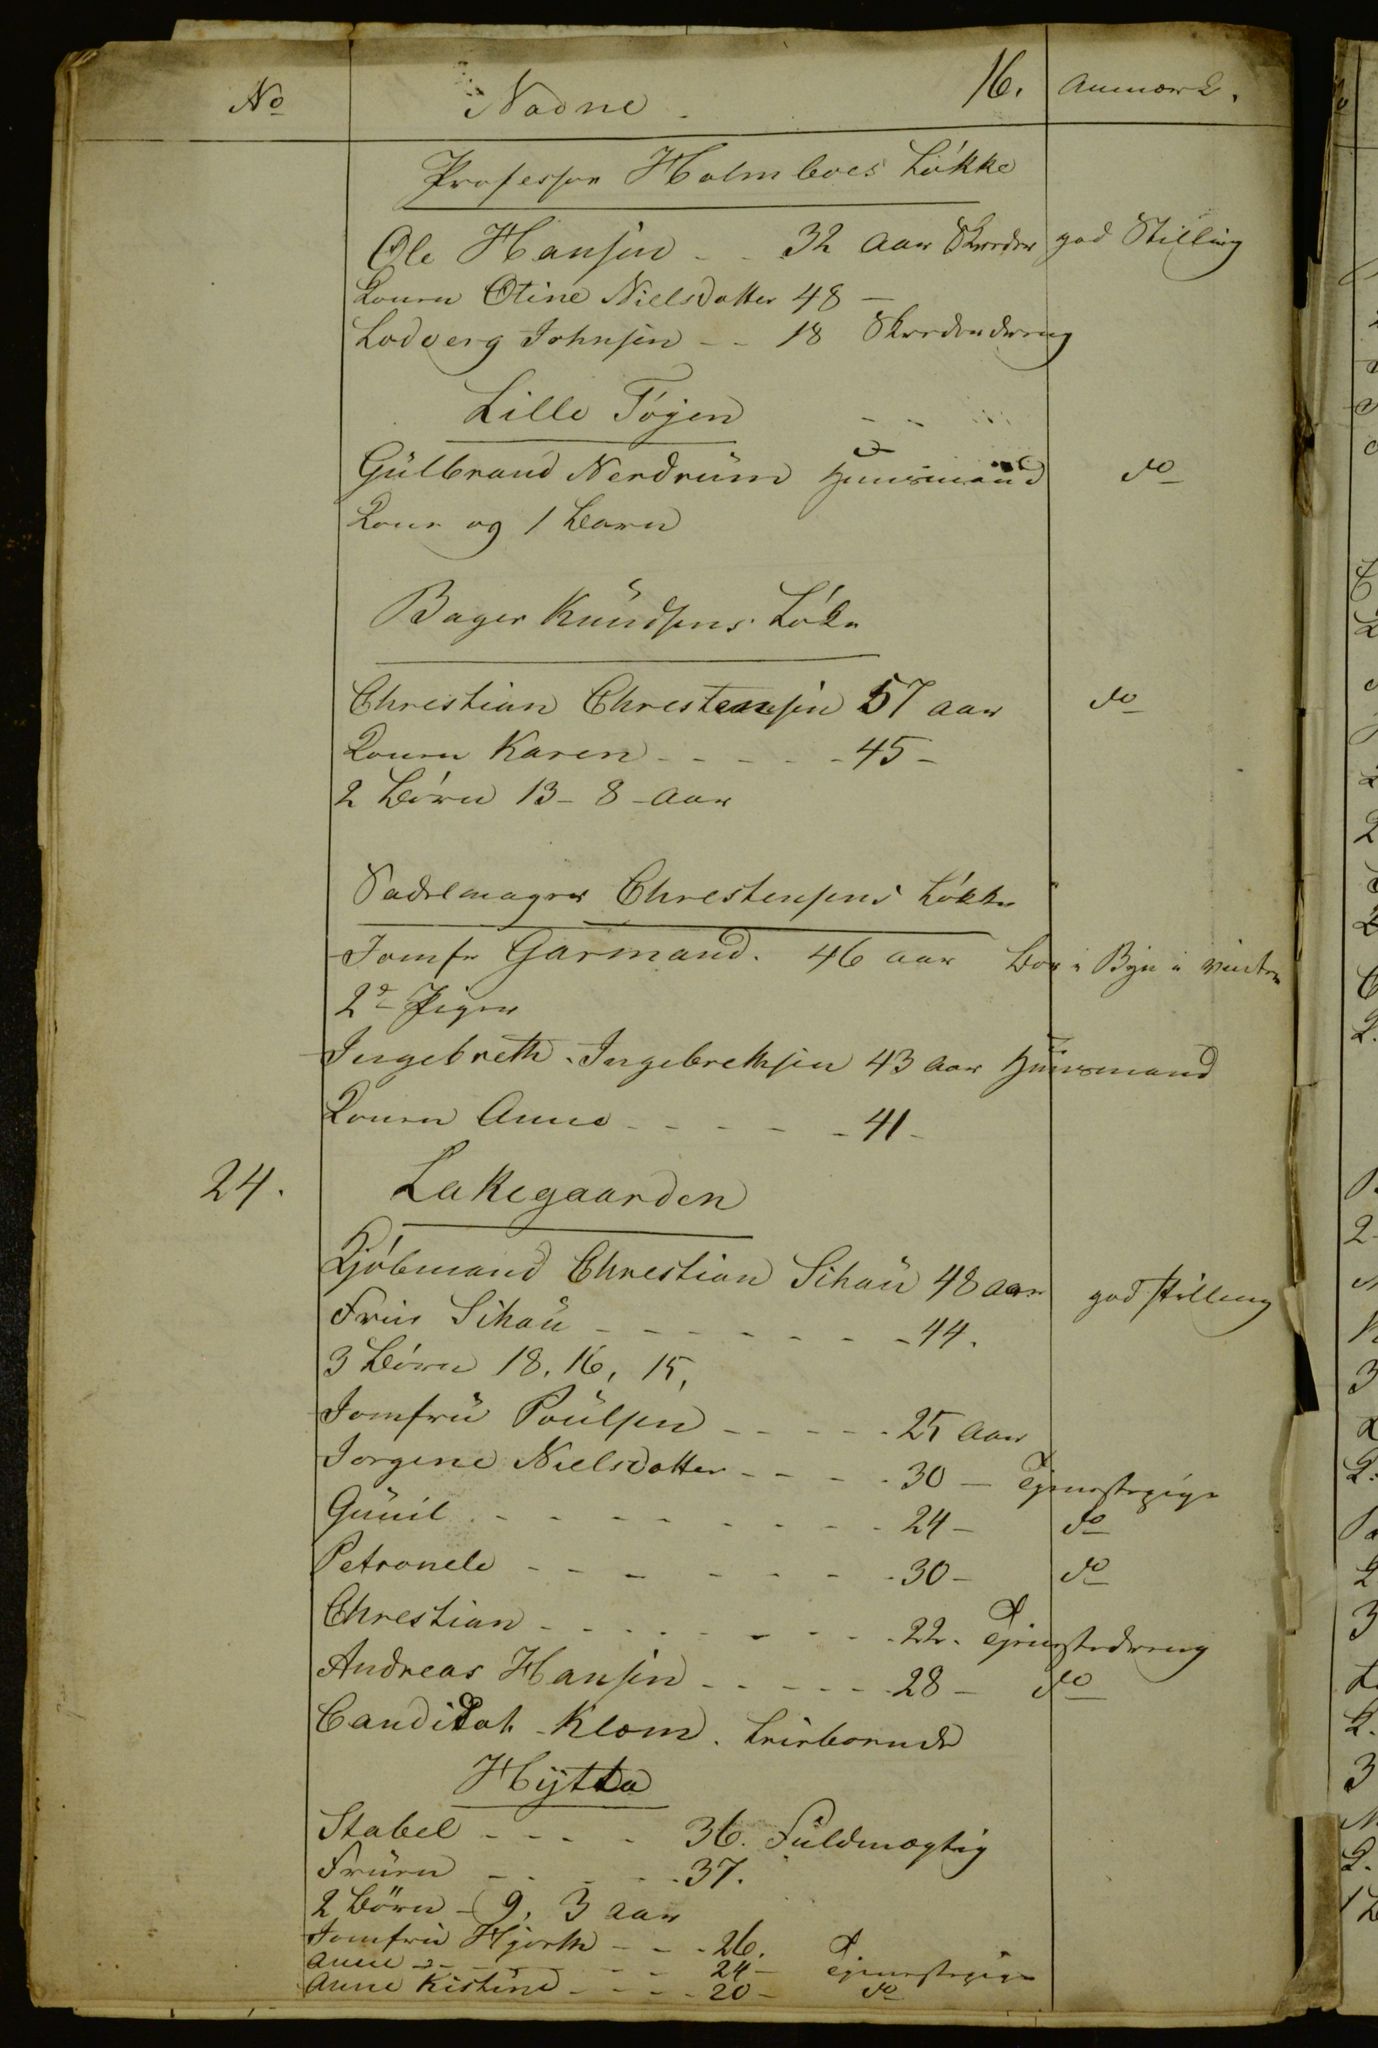 No Navne. 16. Anmærk.
Professor Holmboes Løkke
Ole Hansen - - 32 Aar Skreder god Stilling
Konen Otine Nielsdatter 48 -
Lodverg Johnsen - - 18 Skrederdreng
Lille Tøjen
Gulbrand Nerdrum Huusmand do
Kone og 1 Barn
Bager Knudsens Løke
Christian Chrestensen 57 aar do
Konen Karen - - - - - 45 -
2 Børn 13 - 8 - aar
Sadelmager Chrestensens Løkke
Jomfr Garmand. 46 aar Bor i Byn i vinter
2de Piger
Ingebreth Ingebrethsen 43 aar Huusmand
Konen Anne - - - - - 41 -
24. Lakegaarden
Kjøbmand Chrestian Schau 48 aar god stilling
Frue Schau - - - - - - - 44.
3 Børn 18. 16, 15,
Jomfru Poulsen - - - - - 25 aar
Jorgine Nielsdatter - - - - 30 - Tjenestepige
Gunil - - - - - - - - - 24 - do
Petronele - - - - - - - 30 - do
Chrestian - - - - - - - - 22. Tjenestedreng
Andreas Hansen - - - - - 28 - do
Candidat Klom. Leieboende
Hytta
Stabel - - - - 36. Fuldmægtig
Fruen - - - - - 37.
2 Børn - 9, 3 aar
Jomfru Hjorth - - - 26.
Anne - - - - - - 24 - Tjenestepige
Anne Kistine - - - - 20 - do